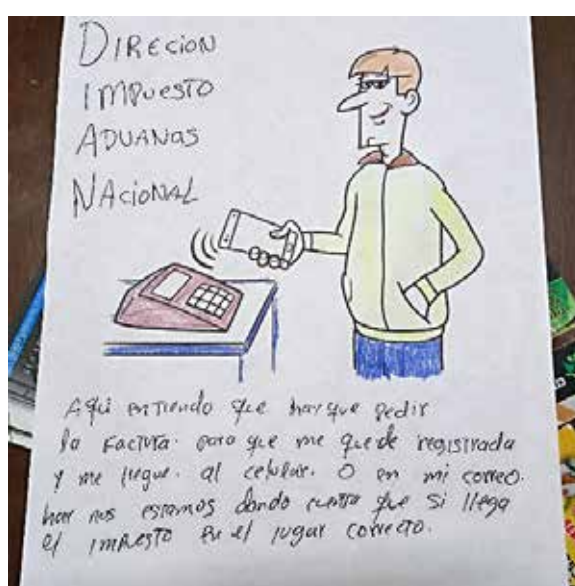 DIRECION
IMPUESTO
ADUANAS
NACIONAL
Aqui entiendo que hay que pedir
la Factura. para que me quede registrada
y me llegue. al celular. O en mi correo.
hay nos estamos dando cuenta que si llega
el IMPUESTO En el lugar correcto.